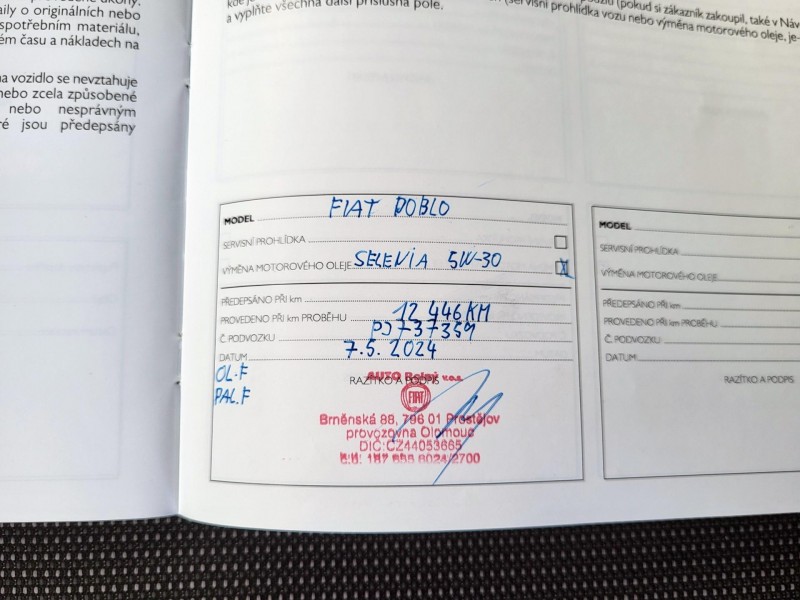 aily o originálních nebo
spotřebním materiálu,
ém času a nákladech na
na vozidlo se nevztahuje
nebo zcela způsobené
nebo nesprávným
ré jsou předepsány
(servisní prohlídka vozu nebo výměna motorového oleje, je-
a vyplňte všechna další příslušná pole.
MODEL FIAT DOBLO
SERVISNÍ PROHLÍDKA
VÝMĚNA MOTOROVÉHO OLEJE SELENIA 5W-30
PŘEDEPSÁNO PŘI km
PROVEDENO PŘI km PROBĚHU 12 446 KM
Č. PODVOZKU PJ737359
DATUM 7.5. 2024
OL.F
PAL.F
RAZÍTKO A PODPIS
AUTO v.o.s.
FIAT
Brněnská 88, 796 01 Prostějov
provozovna Olomouc
DIČ:CZ44053665
MODEL
SERVISNÍ PROHLÍDKA
VÝMĚNA MOTOROVÉHO OLEJE
PŘEDEPSÁNO PŘI km
PROVEDENO PŘI km PROBĚHU
Č. PODVOZKU
DATUM
RAZÍTKO A PODPIS